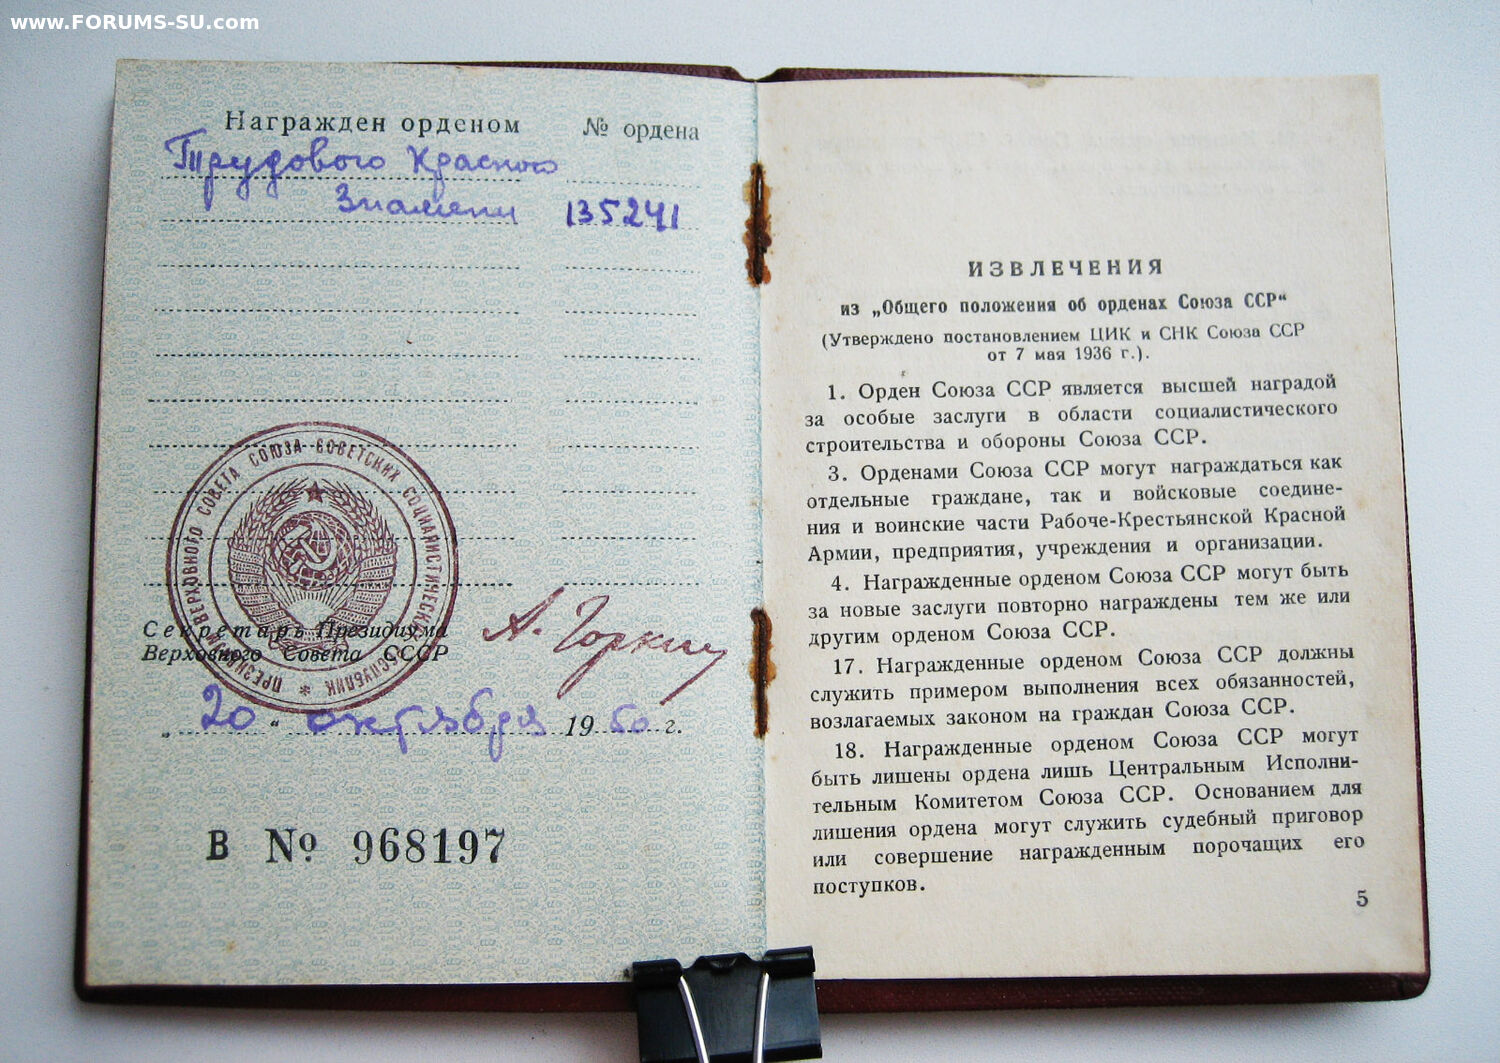 www.FORUMS-SU.com
Награжден орденом № ордена
Трудового Красного
Знамени 135241
ПРЕЗИДИУМ ВЕРХОВНОГО СОВЕТА СОЮЗА СОВЕТСКИХ СОЦИАЛИСТИЧЕСКИХ РЕСПУБЛИК
Секретарь Президиума
Верховного Совета СССР
А. Горкин
„20“ октября 1950 г.
В № 968197
ИЗВЛЕЧЕНИЯ
из „Общего положения об орденах Союза ССР“
(Утверждено постановлением ЦИК и СНК Союза ССР
от 7 мая 1936 г.).
1. Орден Союза ССР является высшей наградой
за особые заслуги в области социалистического
строительства и обороны Союза ССР.
3. Орденами Союза ССР могут награждаться как
отдельные граждане, так и войсковые соедине-
ния и воинские части Рабоче-Крестьянской Красной
Армии, предприятия, учреждения и организации.
4. Награжденные орденом Союза ССР могут быть
за новые заслуги повторно награждены тем же или
другим орденом Союза ССР.
17. Награжденные орденом Союза ССР должны
служить примером выполнения всех обязанностей,
возлагаемых законом на граждан Союза ССР.
18. Награжденные орденом Союза ССР могут
быть лишены ордена лишь Центральным Исполни-
тельным Комитетом Союза ССР. Основанием для
лишения ордена могут служить судебный приговор
или совершение награжденным порочащих его
поступков.
5